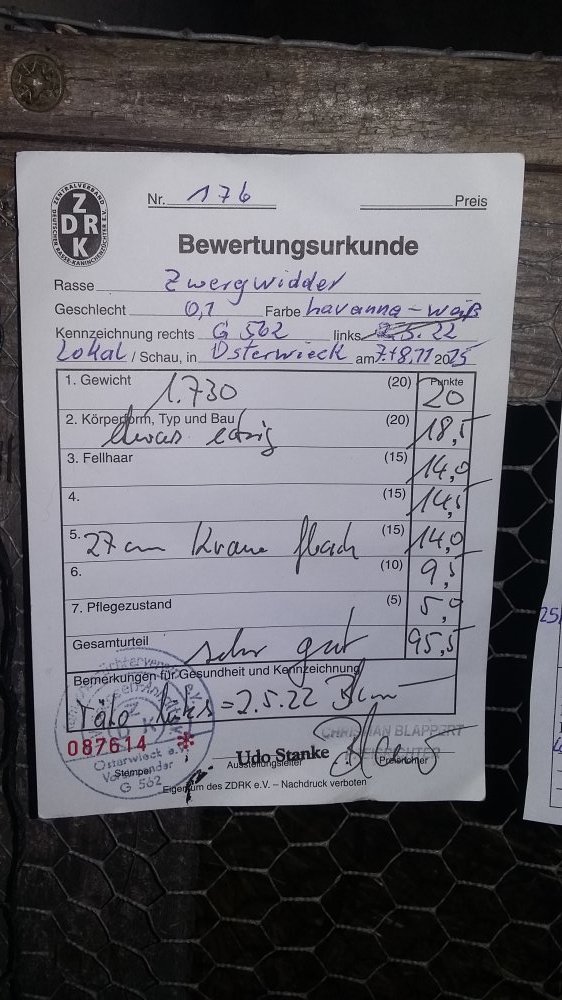 ZENTRALVERBAND DEUTSCHER RASSE-KANINCHENZÜCHTER E.V.
ZDRK
Nr. 176 Preis
Bewertungsurkunde
Rasse Zwergwidder
Geschlecht 0,1 Farbe havanna-weiß
Kennzeichnung rechts G 562 links 2.5.22
Lokal / Schau, in Osterwieck am 7.+8.11 2015
1. Gewicht 1.730 (20) Punkte 20
2. Körperform, Typ und Bau etwas eckig (20) 18,5
3. Fellhaar (15) 14,0
4. (15) 14,5
5. 27 cm Krone flach (15) 14,0
6. (10) 9,5
7. Pflegezustand (5) 5,0
Gesamturteil sehr gut 95,5
Bemerkungen für Gesundheit und Kennzeichnung
Täto links = 2.5.22
087614 *
Osterwieck e.V.
Vorsitzender
G 562
Stempel
Udo Stanke
Ausstellungsleiter
CHRISTIAN BLAPPERT
PREISRICHTER
Preisrichter
Eigentum des ZDRK e.V. – Nachdruck verboten
25/